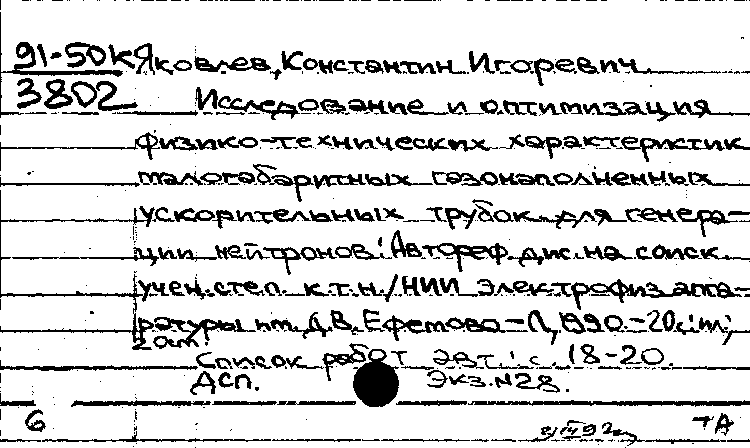 91-50к Яковлев, Константин Игоревич.
3802 Исследование и оптимизация
физико-технических характеристик
малогабаритных газонаполненных
ускорительных трубок для генера-
ции нейтронов: Автореф. дис. на соиск.
учен. степ. к.т.н./НИИ электрофиз. аппа-
ратуры им. Д.В. Ефремова.-Л, 1990.-20с.: ил;
20см.
Список работ авт.: с. 18-20.
Дсп. Экз. N28.
6 ТА